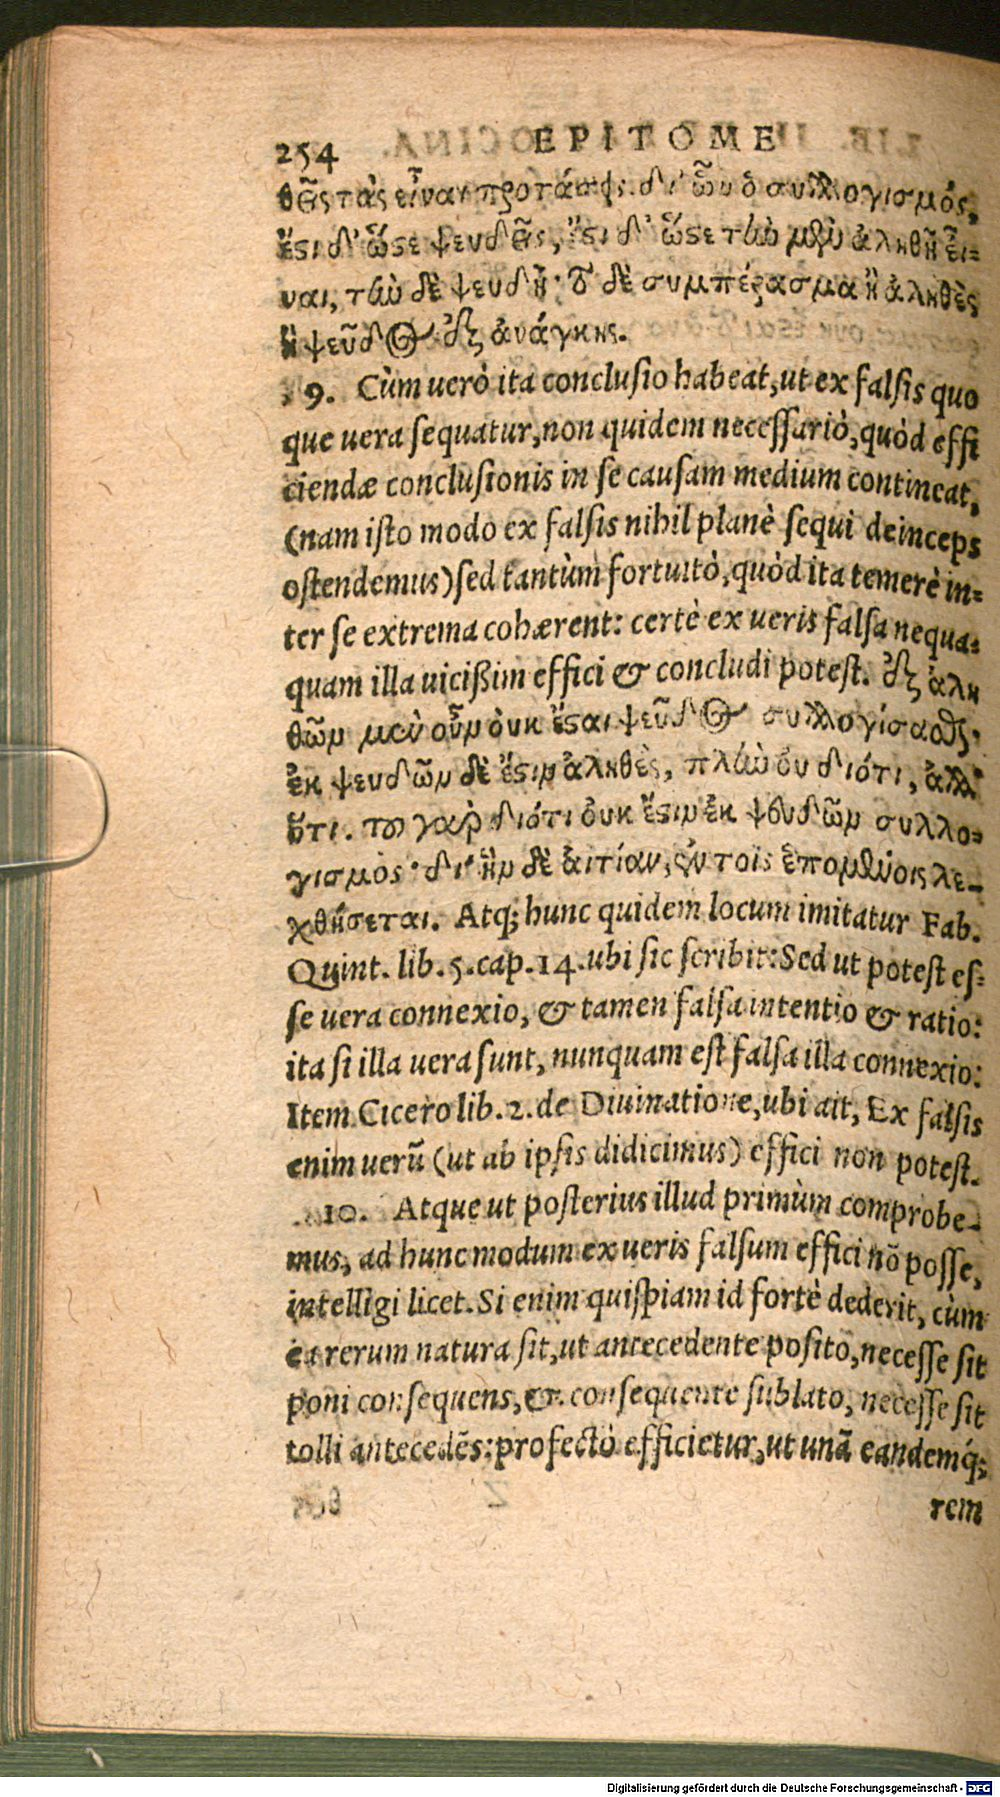 254 EPITOME
θεῖς τὰς εἶναι προτάσεις. δι' ὧν ὁ συλλογισμός,
ἔστι δ' ὥστε ψευδεῖς, ἔστι δ' ὥστε τὴν μὲν ἀληθῆ εἶ=
ναι, τὴν δὲ ψευδῆ· τὸ δὲ συμπέρασμα ἢ ἀληθὲς
ἢ ψεῦδος ἐξ ἀνάγκης.
9. Cùm uerò ita conclusio habeat, ut ex falsis quo
que uera sequatur, non quidem necessariò, quòd effi
ciendæ conclusionis in se causam medium contineat,
(nam isto modo ex falsis nihil planè sequi deinceps
ostendemus) sed tantùm fortuitò, quòd ita temerè in=
ter se extrema cohærent: certè ex ueris falsa nequa=
quam illa uicißim effici & concludi potest. ἐξ ἀλη
θῶν μὲν οὖν ὀυκ ἔσται ψεῦδος συλλογίσασθαι·
ἐκ ψευδῶν δὲ ἔστιν ἀληθὲς, πλὴν ὀυ διότι, ἀλλ'
ὅτι. τοῦ γὰρ διότι ὀυκ ἔστιν ἐκ ψευδῶν συλλο=
γισμός· δι' ἣν δὲ ἀιτίαν, ἐν τοῖς ἑπομένοις λε=
χθήσεται. Atq; hunc quidem locum imitatur Fab.
Quint. lib. 5. cap. 14. ubi sic scribit: Sed ut potest es=
se uera connexio, & tamen falsa intentio & ratio:
ita si illa uera sunt, nunquam est falsa illa connexio:
Item Cicero lib. 2. de Diuinatione, ubi ait, Ex falsis
enim uerũ (ut ab ipsis didicimus) effici non potest.
10. Atque ut posterius illud primùm comprobe=
mus, ad hunc modum ex ueris falsum effici nõ posse,
intelligi licet. Si enim quispiam id fortè dederit, cùm
ea rerum natura sit, ut antecedente posito, necesse sit
poni consequens, & consequente sublato, necesse sit
tolli antecedẽs: profectò efficietur, ut unã eandemq́;
rem
Digitalisierung gefördert durch die Deutsche Forschungsgemeinschaft - DFG